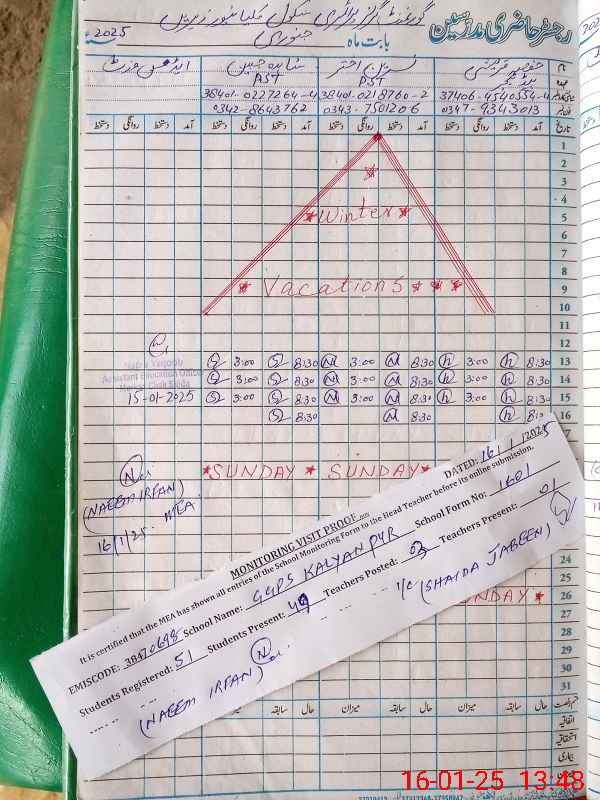 رجسٹر حاضری مدرسین
گورنمنٹ گرلز پرائمری سکول کلیانپور
بابت ماہ جنوری 2025
PST PST
38401-0227264-4 38401-0218760-2 37406-4540554-4
0342-8643762 0343-7501206 0347-9343013
تاریخ آمد دستخط روانگی دستخط آمد دستخط روانگی دستخط آمد دستخط روانگی دستخط
1
2
3
4
5 Winter
6
7
8
9 Vacations
10
11
12
13 8:30 3:00 8:30 3:00 8:30 3:00
14 8:30 3:00 8:30 3:00 8:30 3:00
15 8:30 3:00 8:30 3:00 8:30 3:00
16 8:30 8:30
Assistant Education Officer
15-01-2025
SUNDAY SUNDAY
(NAEEM IRFAN)
MEA
16/1/25
MONITORING VISIT PROOF DATED: 16/1/2025
It is certified that the MEA has shown all entries of the School Monitoring Form to the Head Teacher before its online submission.
EMISCODE: School Name: GGPS KALYANPUR School Form No: 1601
Students Registered: 51 Students Present: 49 Teachers Posted: 03 Teachers Present: 01
(NAEEM IRFAN) I/C (SHAIDA JABEEN)
24
25
26 SUNDAY
27
28
29
30
31
حال سابقہ میزان حال سابقہ میزان حال سابقہ
اتفاقیہ
استحقاقیہ
بیماری
16-01-25 13:48